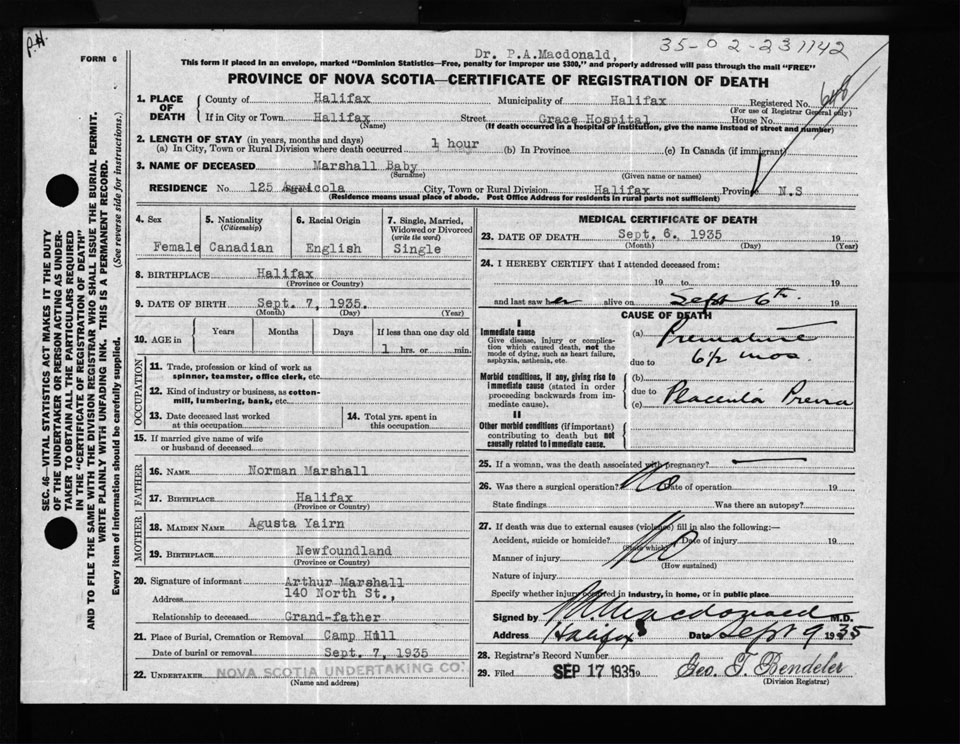 P.H.
35-02-231142
Dr. P.A.Macdonald,
FORM 6
This form if placed in an envelope, marked "Dominion Statistics—Free, penalty for improper use $300," and properly addressed will pass through the mail "FREE"
PROVINCE OF NOVA SCOTIA—CERTIFICATE OF REGISTRATION OF DEATH
SEC. 46—VITAL STATISTICS ACT MAKES IT THE DUTY
OF THE UNDERTAKER OR PERSON ACTING AS UNDER-
TAKER TO OBTAIN ALL THE PARTICULARS REQUIRED
IN THE "CERTIFICATE OF REGISTRATION OF DEATH"
AND TO FILE THE SAME WITH THE DIVISION REGISTRAR WHO SHALL ISSUE THE BURIAL PERMIT.
WRITE PLAINLY WITH UNFADING INK. THIS IS A PERMANENT RECORD.
Every item of information should be carefully supplied. (See reverse side for instructions.)
1. PLACE OF DEATH
County of Halifax Municipality of Halifax Registered No.
(For use of Registrar General only)
If in City or Town Halifax Street Grace Hospital House No.
(Name) (If death occurred in a hospital or institution, give the name instead of street and number)
2. LENGTH OF STAY (in years, months and days)
(a) In City, Town or Rural Division where death occurred 1 hour (b) In Province (c) In Canada (if immigrant)
3. NAME OF DECEASED Marshall Baby
(Surname) (Given name or names)
RESIDENCE No. 125 Agricola City, Town or Rural Division Halifax Province N.S
(Residence means usual place of abode. Post Office Address for residents in rural parts not sufficient)
4. Sex 5. Nationality (Citizenship) 6. Racial Origin 7. Single, Married, Widowed or Divorced (write the word)
Female Canadian English Single
8. BIRTHPLACE Halifax
(Province or Country)
9. DATE OF BIRTH Sept. 7, 1935.
(Month) (Day) (Year)
10. AGE in Years Months Days If less than one day old
1 hrs. or min.
OCCUPATION
11. Trade, profession or kind of work as
spinner, teamster, office clerk, etc.
12. Kind of industry or business, as cotton-
mill, lumbering, bank, etc.
13. Date deceased last worked
at this occupation
14. Total yrs. spent in
this occupation
15. If married give name of wife
or husband of deceased
FATHER
16. NAME Norman Marshall
17. BIRTHPLACE Halifax
(Province or Country)
MOTHER
18. MAIDEN NAME Agusta Yairn
19. BIRTHPLACE Newfoundland
(Province or Country)
20. Signature of informant Arthur Marshall
Address 140 North St.,
Relationship to deceased Grand-father
21. Place of Burial, Cremation or Removal Camp Hill
Date of burial or removal Sept. 7, 1935
22. UNDERTAKER NOVA SCOTIA UNDERTAKING CO.
(Name and address)
MEDICAL CERTIFICATE OF DEATH
23. DATE OF DEATH Sept. 6. 1935 19
(Month) (Day) (Year)
24. I HEREBY CERTIFY that I attended deceased from:
19 to 19
and last saw her alive on Sept 6th. 19
CAUSE OF DEATH
I
Immediate cause
Give disease, injury or complica-
tion which caused death, not the
mode of dying, such as heart failure,
asphyxia, asthenia, etc.
(a) Premature
6½ mos.
due to
Morbid conditions, if any, giving rise to
immediate cause (stated in order
proceeding backwards from im-
mediate cause).
(b)
due to
(c) Placenta Previa
II
Other morbid conditions (if important)
contributing to death but not
causally related to immediate cause.
25. If a woman, was the death associated with pregnancy?
26. Was there a surgical operation? No Date of operation 19
State findings Was there an autopsy?
27. If death was due to external causes (violence) fill in also the following:—
Accident, suicide or homicide? No Date of injury 19
(State which)
Manner of injury
(How sustained)
Nature of injury
Specify whether injury occurred in industry, in home, or in public place
Signed by P.A. Macdonald M.D.
Address Halifax Date Sept 9 1935
28. Registrar's Record Number
29. Filed SEP 17 1935 Geo. T. Bendeler
(Division Registrar)